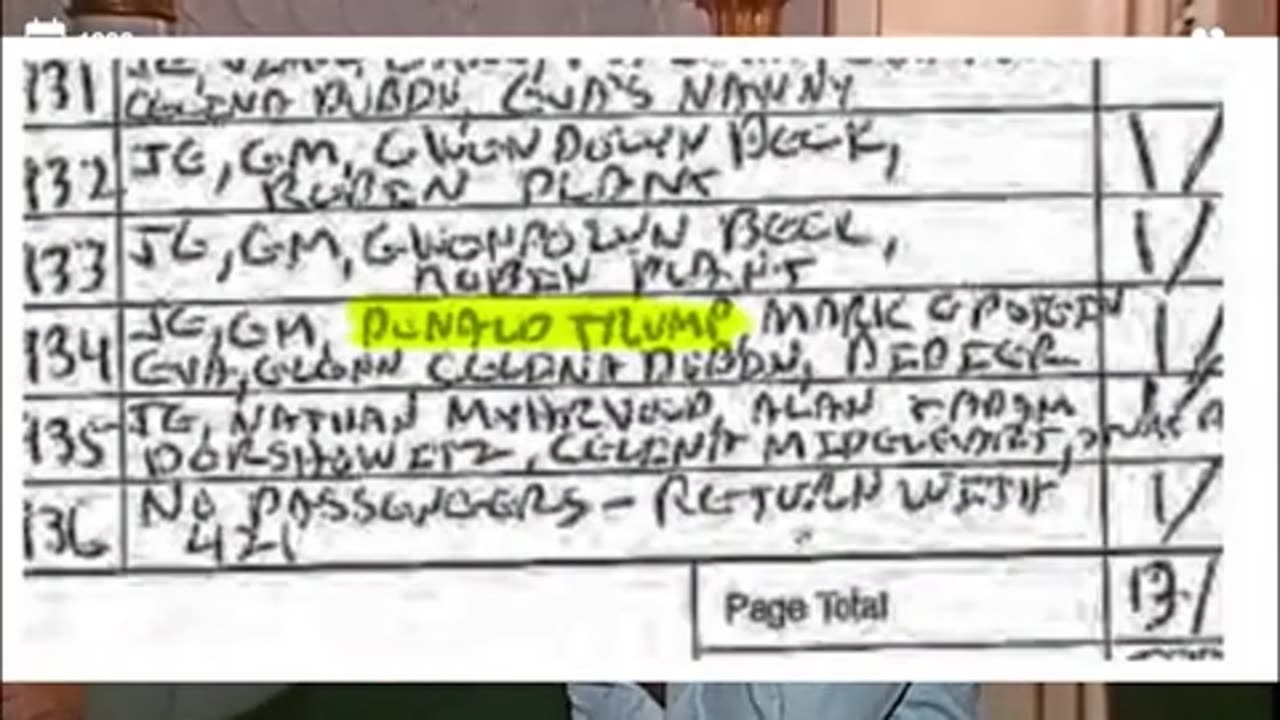 131
CELINA DUBDN, EVA'S NANNY
132 JE, GM, GWENDOLYN BECK,
ROBIN PLANT
133 JE, GM, GWENDOLYN BECK,
ROBIN PLANT
134 JE, GM, DONALD TRUMP, MARK EPSTEIN
EVA, GLENN CELENA DUBDN, DIDIER
135 JE, NATHAN MYHRVOLD, ALAN
DORSHOWITZ, CELENA
136 NO PASSENGERS - RETURN WITH
421
Page Total 13